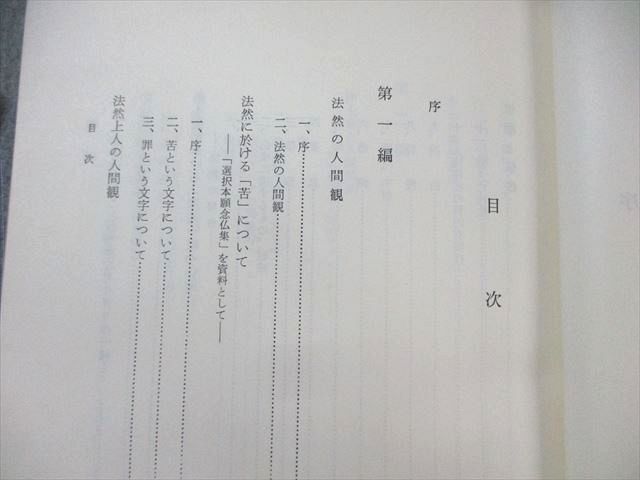 目次
序
第一編
法然の人間観
一、序
二、法然の人間観
法然に於ける「苦」について
――「選択本願念仏集」を資料として――
一、序
二、苦という文字について
三、罪という文字について
法然上人の人間観
目次